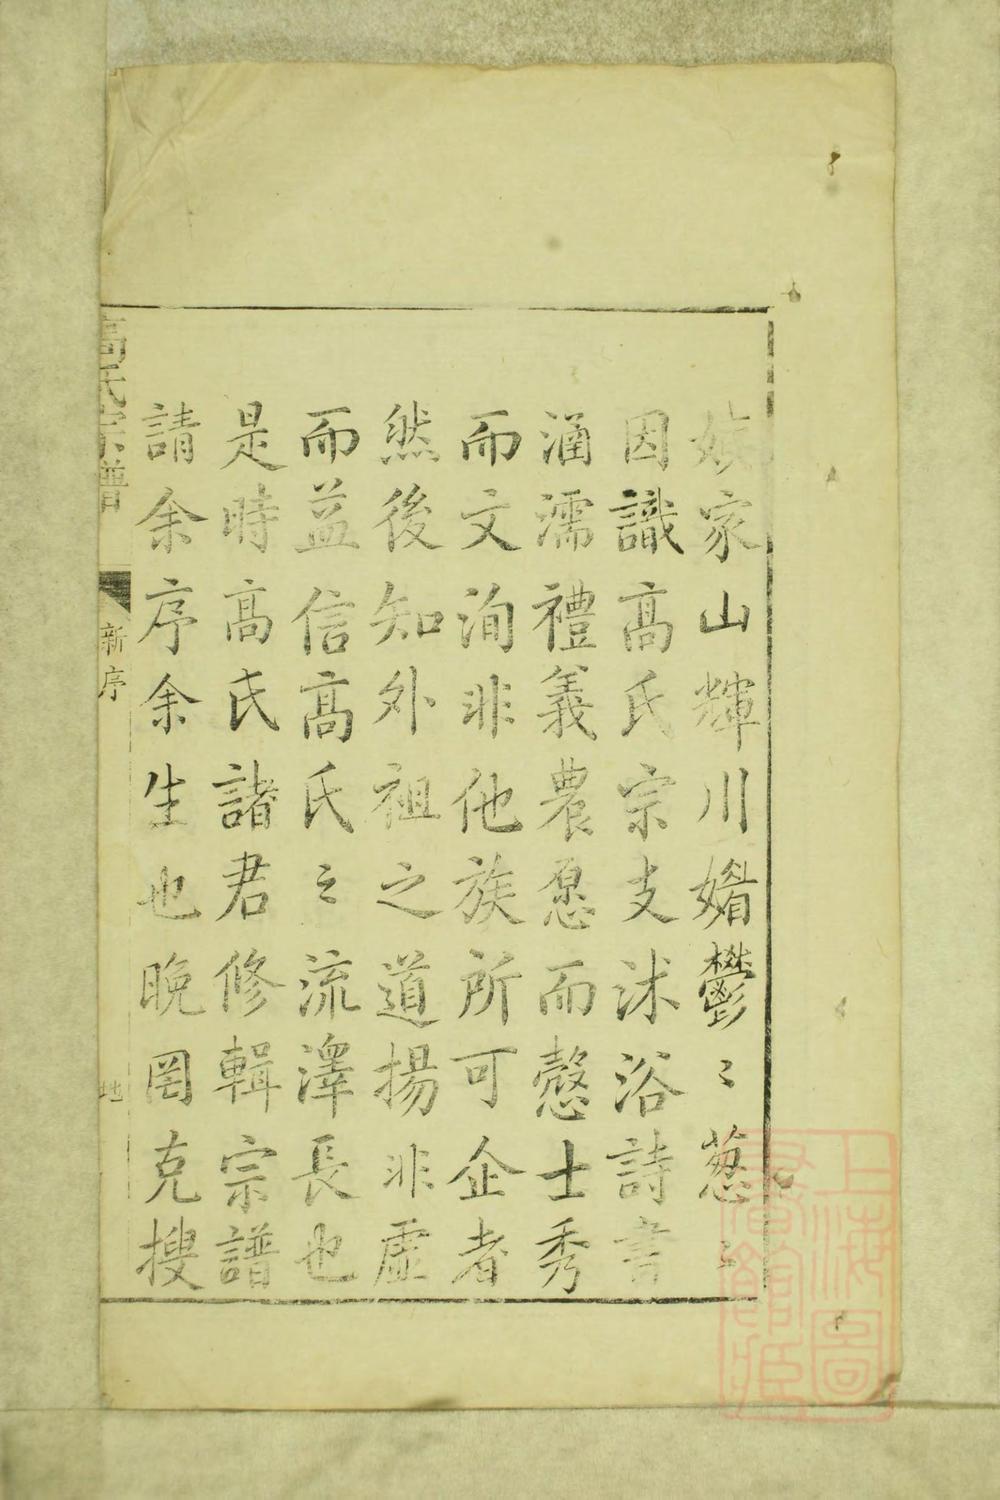 族家山輝川媚鬱〻葱〻
因識高氏宗支沐浴詩書
涵濡禮義農愿而慤士秀
而文洵非他族所可企者
然後知外祖之道揚非虛
而益信高氏之流澤長也
是時高氏諸君修輯宗譜
請余序余生也晚罔克搜
高氏宗譜
新序
地
上海圖書館藏